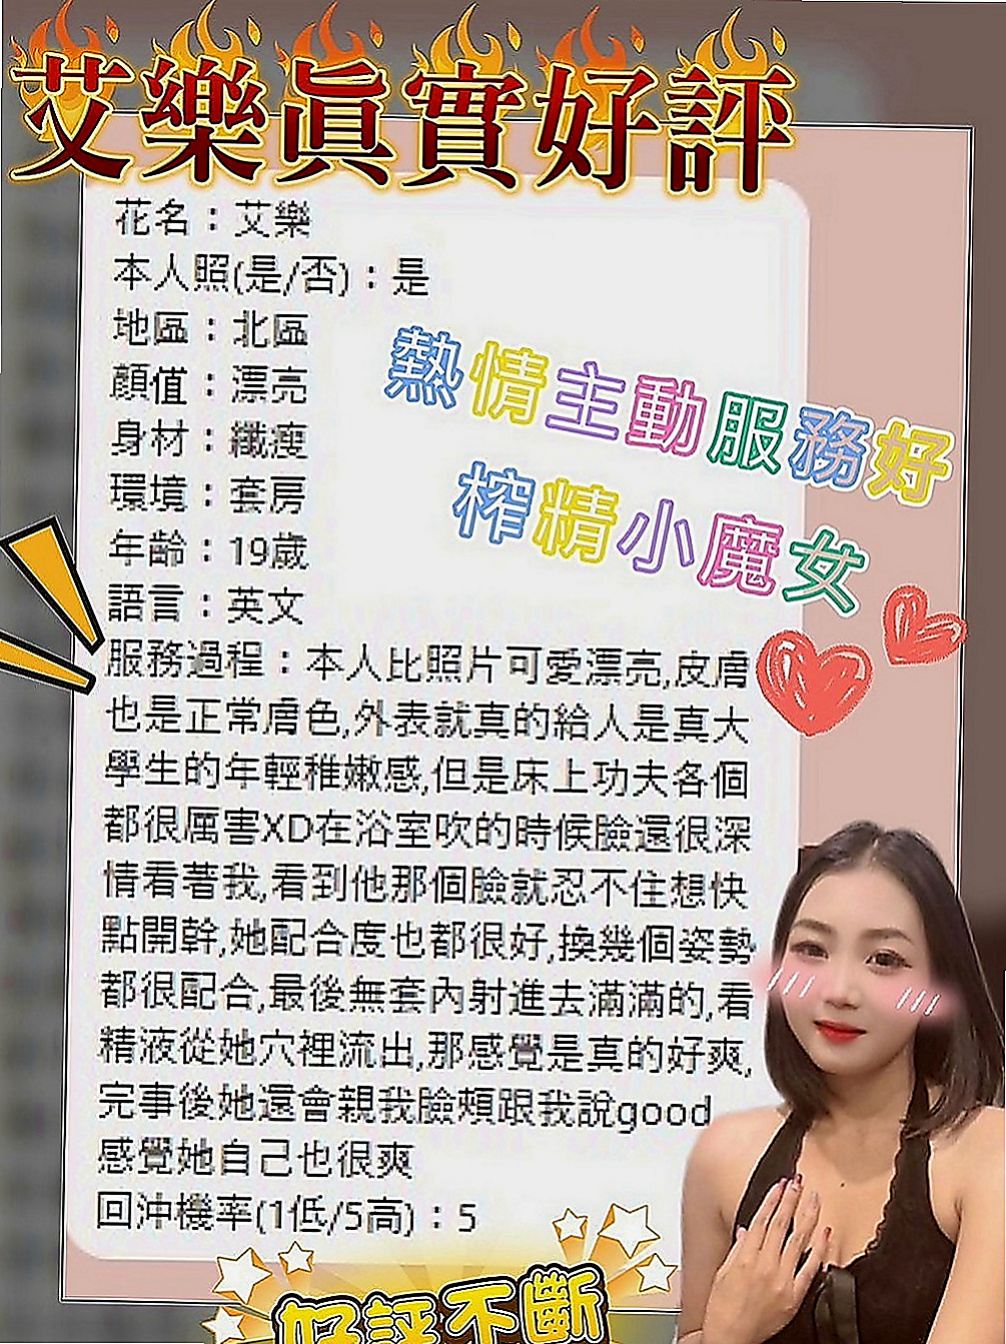 艾樂真實好評
花名：艾樂
本人照(是/否)：是
地區：北區
顏值：漂亮
身材：纖瘦
環境：套房
年齡：19歲
語言：英文
熱情主動服務好
榨精小魔女
服務過程：本人比照片可愛漂亮,皮膚
也是正常膚色,外表就真的給人是真大
學生的年輕稚嫩感,但是床上功夫各個
都很厲害XD在浴室吹的時候臉還很深
情看著我,看到他那個臉就忍不住想快
點開幹,她配合度也都很好,換幾個姿勢
都很配合,最後無套內射進去滿滿的,看
精液從她穴裡流出,那感覺是真的好爽,
完事後她還會親我臉頰跟我說good
感覺她自己也很爽
回沖機率(1低/5高)：5
好評不斷